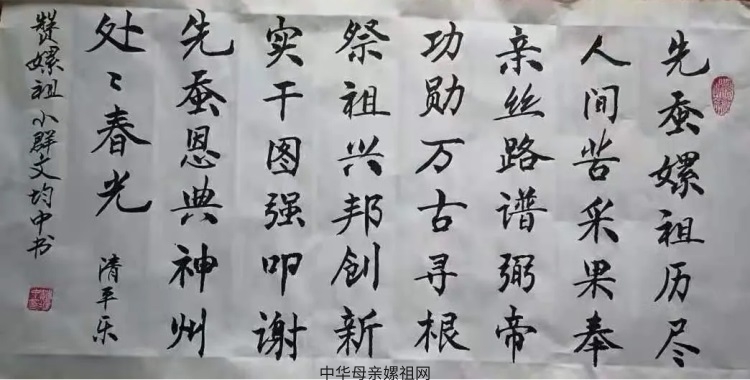 先蚕嫘祖历尽
人间苦采果奉
亲丝路谱弼帝
功勋万古寻根
祭祖兴邦创新
实干图强叩谢
先蚕恩典神州
处〻春光
清平乐
赞嫘祖小群文均中书
中华母亲嫘祖网